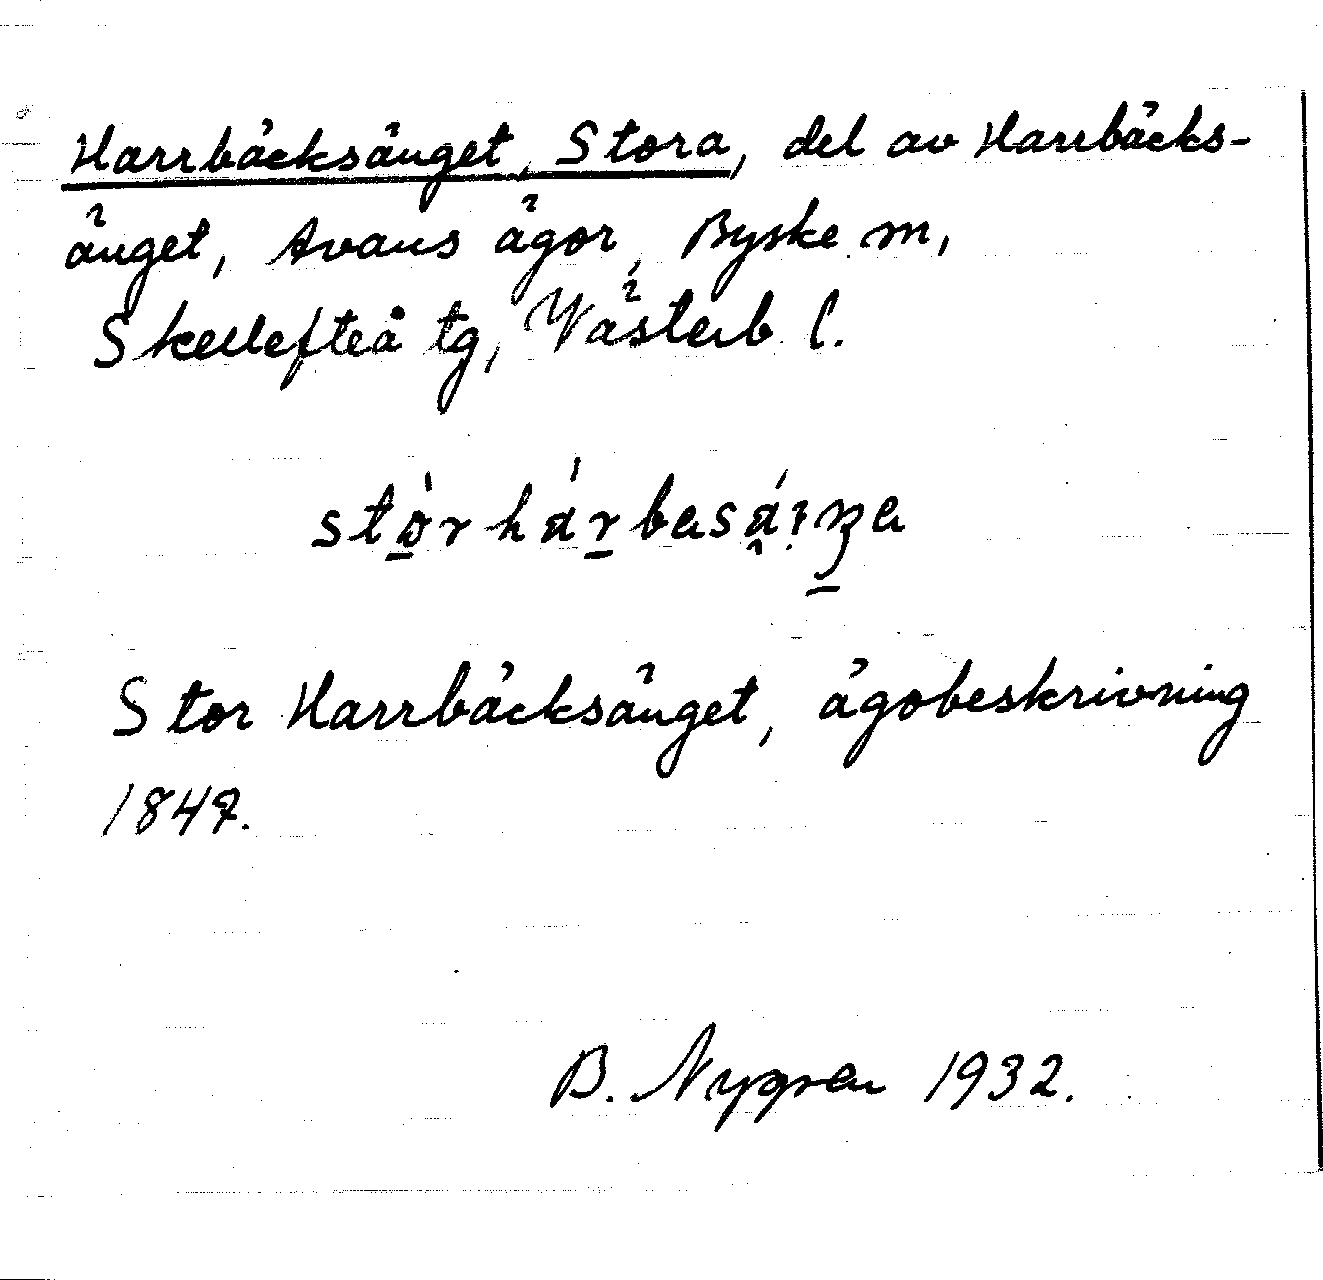 Harrbäcksänget, Stora, del av Harrbäcks-
änget, Avans ägor, Byske sn,
Skellefteå tg, Västerb l.
Stor Harrbäcksänget, ägobeskrivning
1847.
B. Nygren 1932.